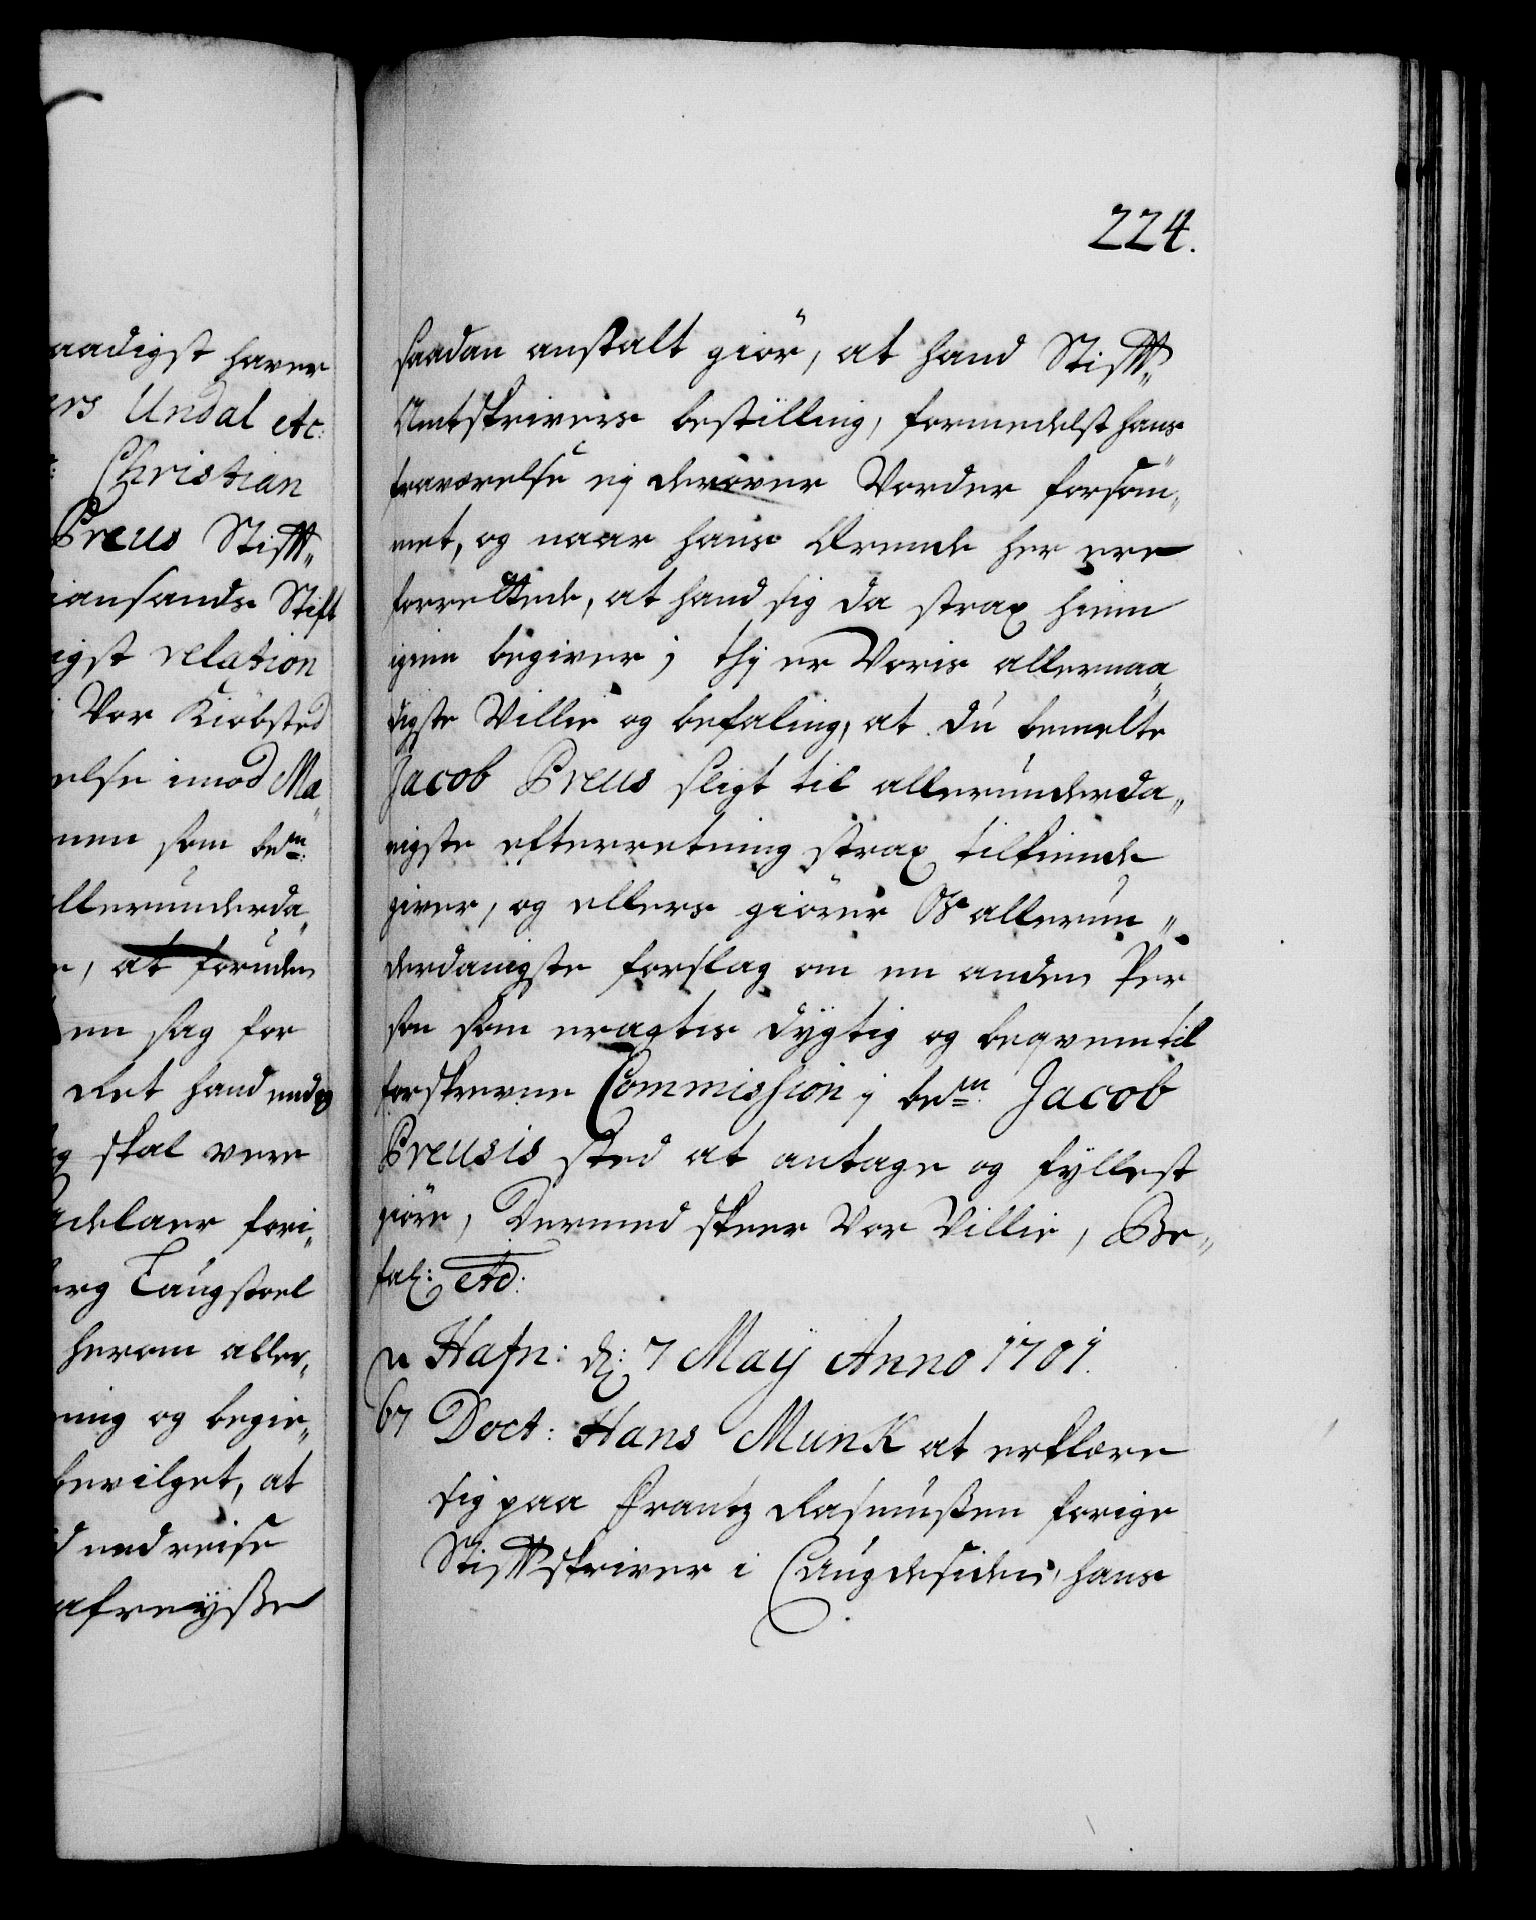 aadigst haver
ers Undal etc:
Christian
Preus Stifft,,
iansands Stift
igst relation
Vor Kiöbsted
else imod Ma,,
nen som bem:
llerunderda,,
e, at foruden
en sag for
det hand endog
skal vere
adelaer fori,,
erg Laugstoel
herom aller,,
ning og begie,,
bevilget, at
d nedreise
afreyße
224.
saadan anstalt giör, at hand Stifft,,
Amtskrivers bestilling, formedelst hans
fraværelse ej derover Vorder forsöm,,
met, og naar hans Ærende her ere
forrettede, at hand sig da strax hiem
igien begiver; thj er Voris allernaa,,
digste Villie og befaling, at du bemelte
Jacob Preus sligt til allerunderda,,
nigste efterretning strax tilkiende
giver, og ellers giörer Os allerun,,
derdanigste forslag om en anden Per
son som eragtis dygtig og beqvem til
forskrevne Commission j bem: Jacob
Preusis sted at antage og fyllest
giöre, Dermed skeer Vor Villie, Be,,
fal: etc:
Hafn: d: 7 May Anno 1701.
67 Doct: Hans Munk at erklære
sig paa Frantz Rasmußen forige
Stifftskriver i Laugdesiden, hans